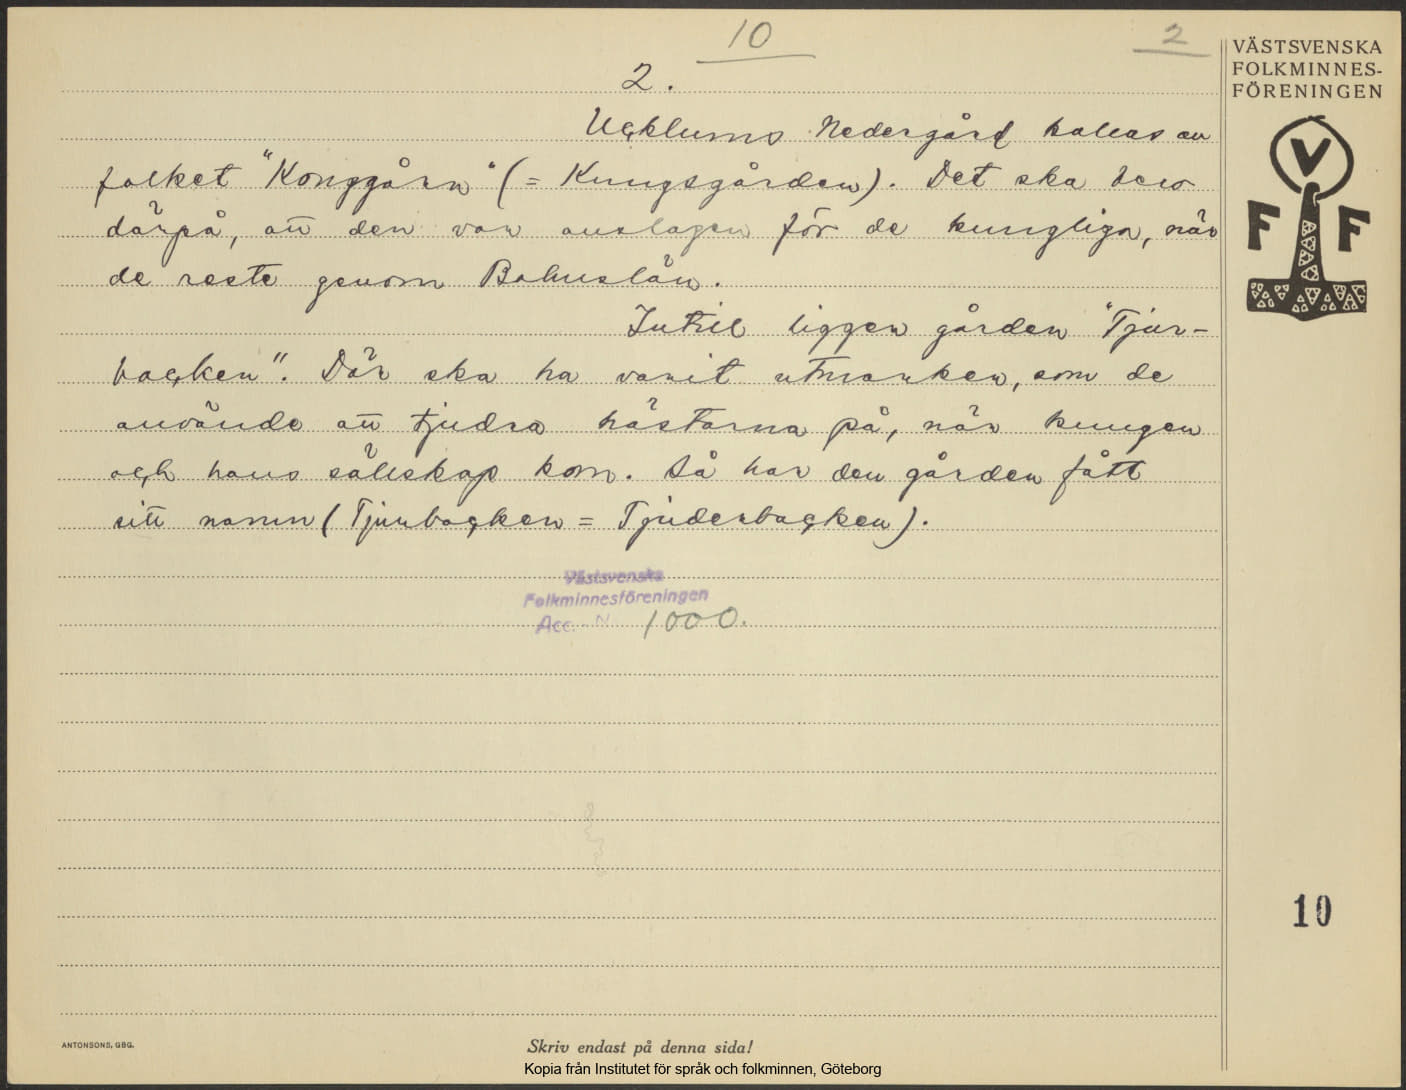 10
2
2.
VÄSTSVENSKA
FOLKMINNES-
FÖRENINGEN
V
F F
Ucklums Nedergård kallas av
folket "Konggårn" (= Kungsgården). Det ska bero
därpå, att den var anslagen för de kungliga, när
de reste genom Bohuslän.
Intill ligger gården "Tjur-
backen". Där ska ha varit utmarken, som de
använde att tjudra hästarna på, när kungen
och hans sällskap kom. Så har den gården fått
sitt namn (Tjurbacken = Tjuderbacken).
Västsvenska
Folkminnesföreningen
Acc. N 1000.
10
ANTONSONS, GBG.
Skriv endast på denna sida!
Kopia från Institutet för språk och folkminnen, Göteborg